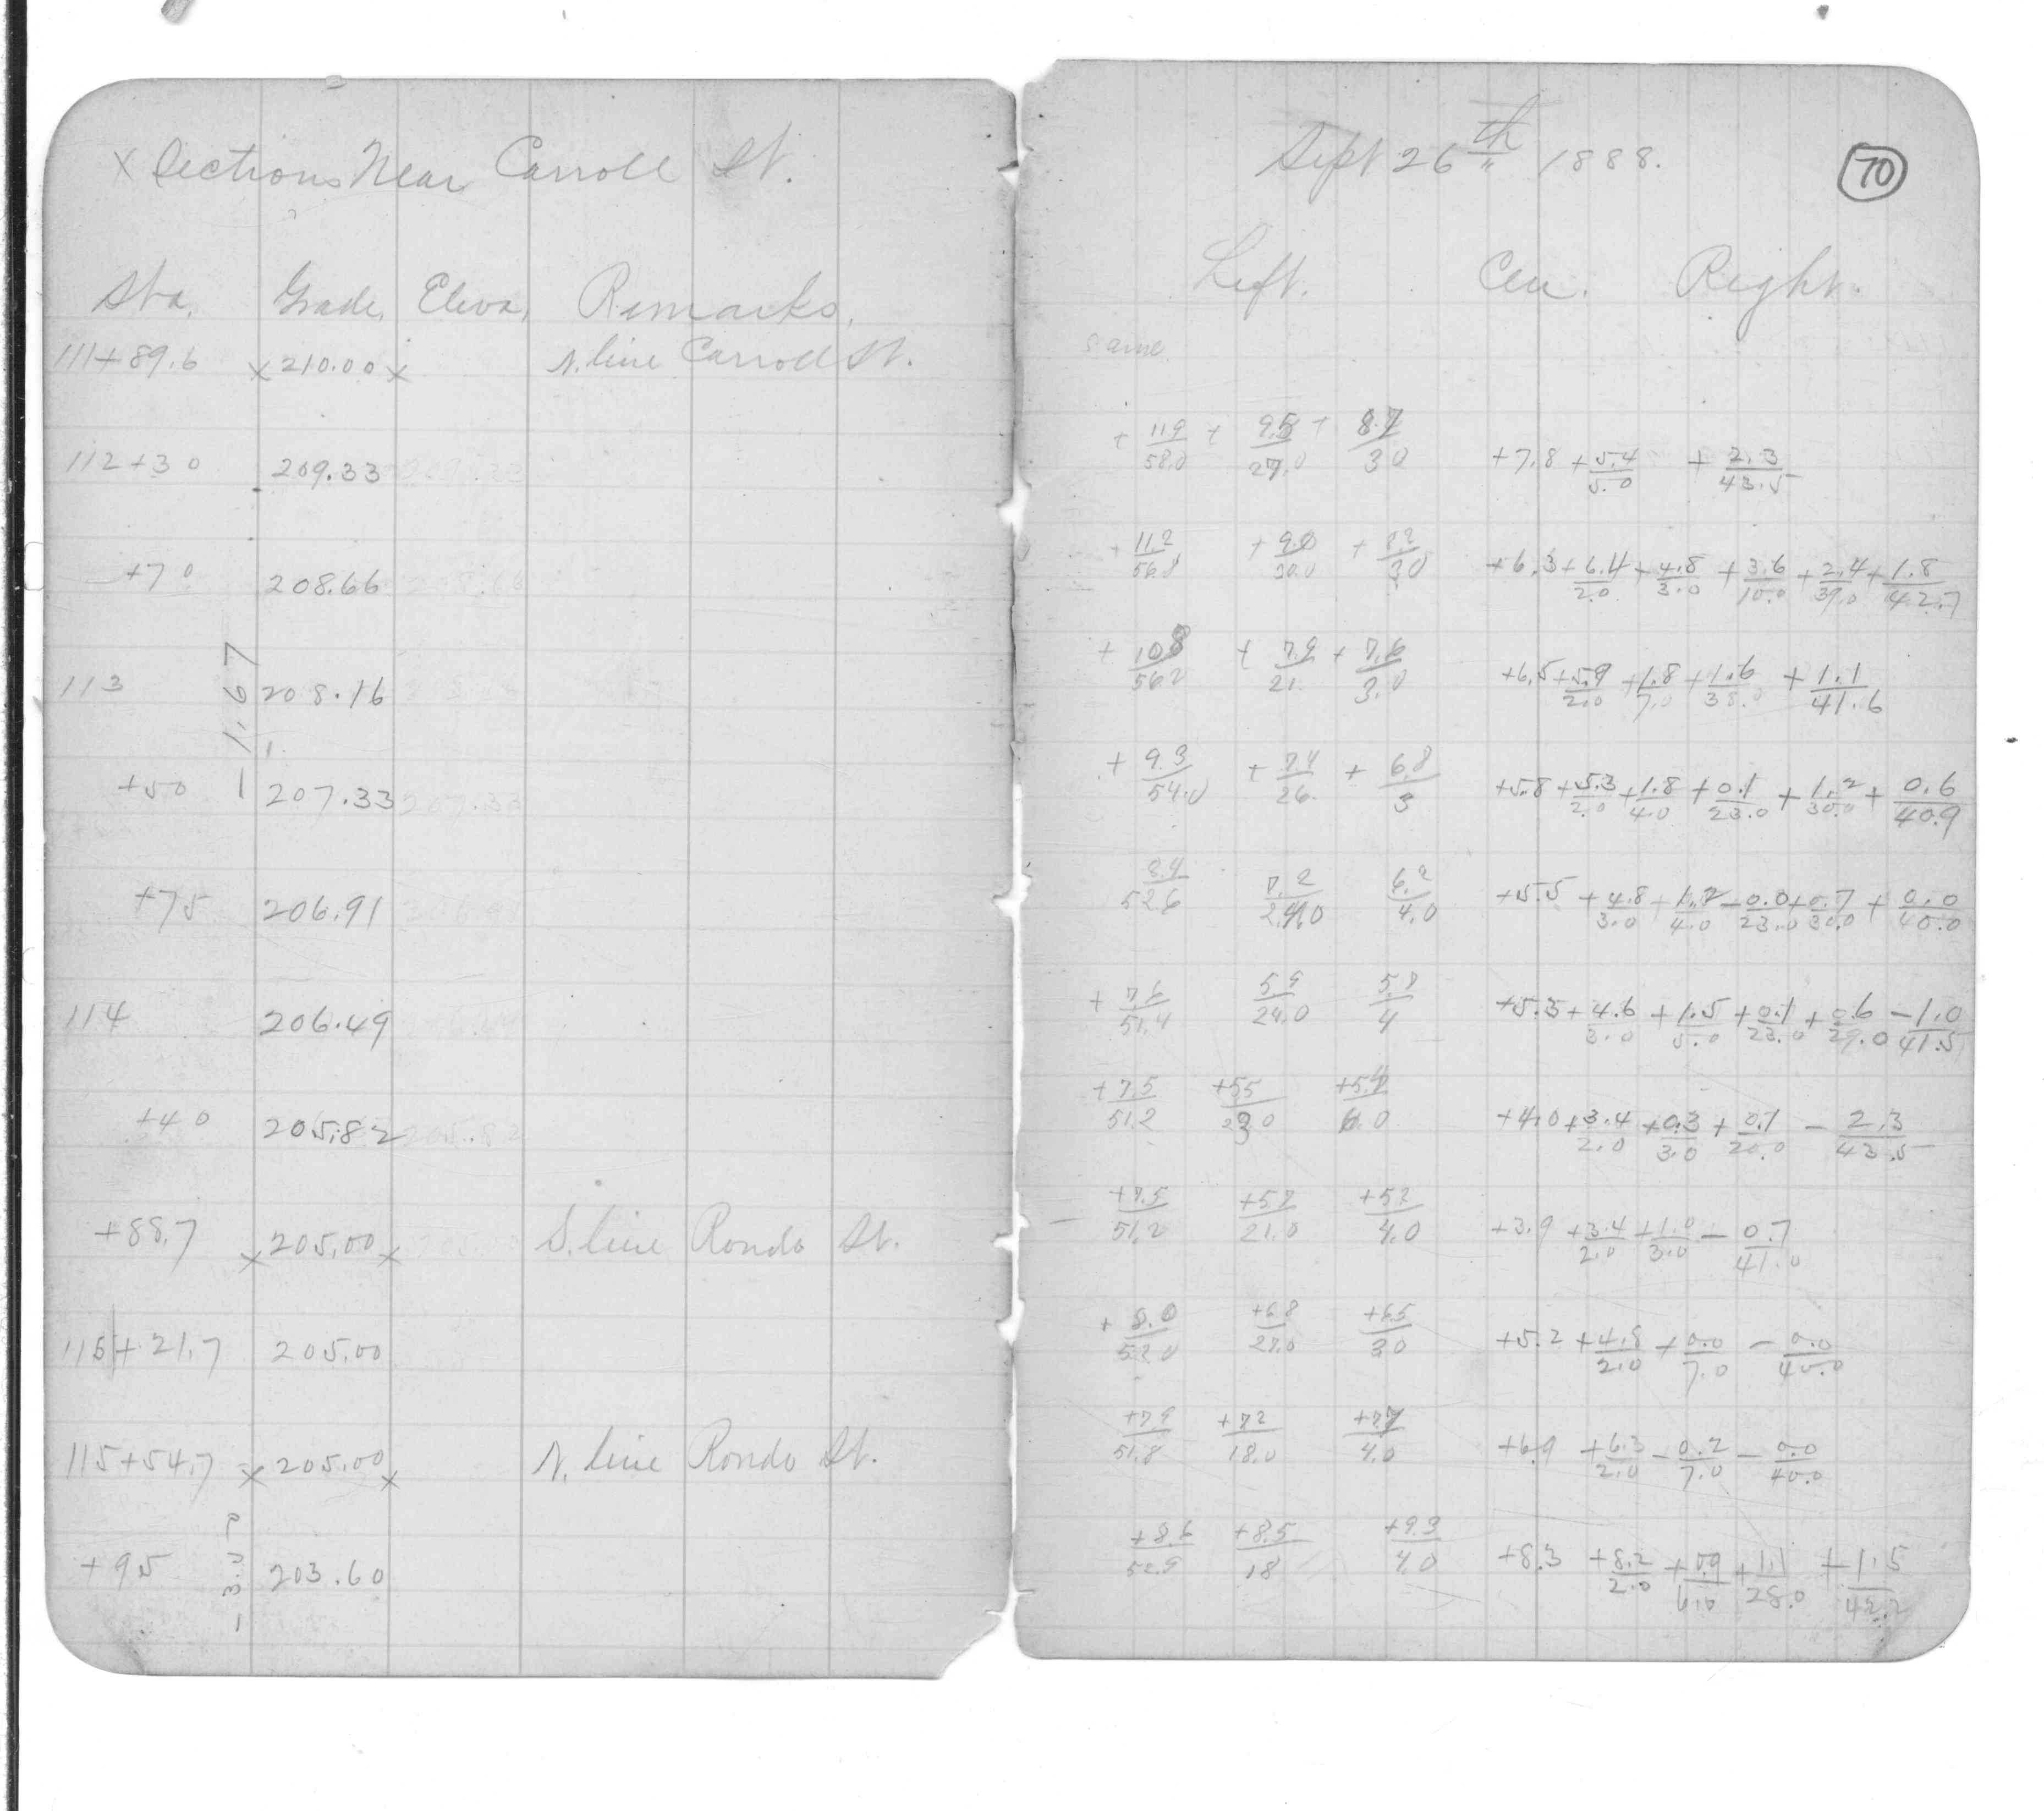 x Sections Near Carroll St.
Sta. Grade, Eleva, Remarks,
111+89.6 x 210.00 x N. line Carroll St.
112+30 209.33 209.33
+70 208.66 208.66
113 208.16
- 1.67
+50 207.33 207.33
+75 206.91 206.91
114 206.49
+40 205.82 205.82
+88.7 x 205.00 x S. line Rondo St.
115+21.7 205.00
115+54.7 x 205.00 x N. line Rondo St.
+95 203.60
Sept 26th 1888.
70
Left. Cen. Right.
same
+ 11.9/58.0 + 9.5/27.0 + 8.7/3.0 +7.8 + 5.4/5.0 + 2.3/43.5
+ 11.2/56.8 + 9.0/30.0 + 8.2/3.0 +6.3 + 6.4/2.0 + 4.8/3.0 + 3.6/10.0 + 2.4/39.0 + 1.8/42.7
+ 10.8/56.2 + 7.9/21. + 7.6/3.0 +6.5 + 5.9/2.0 + 1.8/7.0 + 1.6/38.0 + 1.1/41.6
+ 9.3/54.0 + 7.4/26. + 6.8/3 +5.8 + 5.3/2.0 + 1.8/4.0 + 0.1/23.0 + 1.2/30.0 + 0.6/40.9
8.4/52.6 7.2/24.0 6.2/4.0 +5.5 + 4.8/3.0 + 1.2/4.0 - 0.0/23.0 + 0.7/30.0 + 0.0/40.0
+ 7.6/51.4 5.9/24.0 5.8/4 +5.3 + 4.6/3.0 + 1.5/5.0 + 0.1/23.0 + 0.6/29.0 - 1.0/41.5
+7.5/51.2 +5.5/23.0 +5.4/4.0 +4.0 + 3.4/2.0 + 0.3/3.0 + 0.1/20.0 - 2.3/43.5
+7.5/51.2 +5.7/21.0 +5.2/4.0 +3.9 + 3.4/2.0 + 1.0/3.0 - 0.7/41.0
+ 8.0/52.0 +6.8/27.0 +6.5/3.0 +5.2 + 4.8/2.0 + 0.0/7.0 - 0.0/40.0
+7.9/51.8 +7.2/18.0 +7.7/4.0 +6.9 + 6.3/2.0 - 0.2/7.0 - 0.0/40.0
+8.6/52.9 +8.5/18 +9.3/4.0 +8.3 + 8.2/2.0 + 0.9/6.0 + 1.1/28.0 + 1.5/42.2